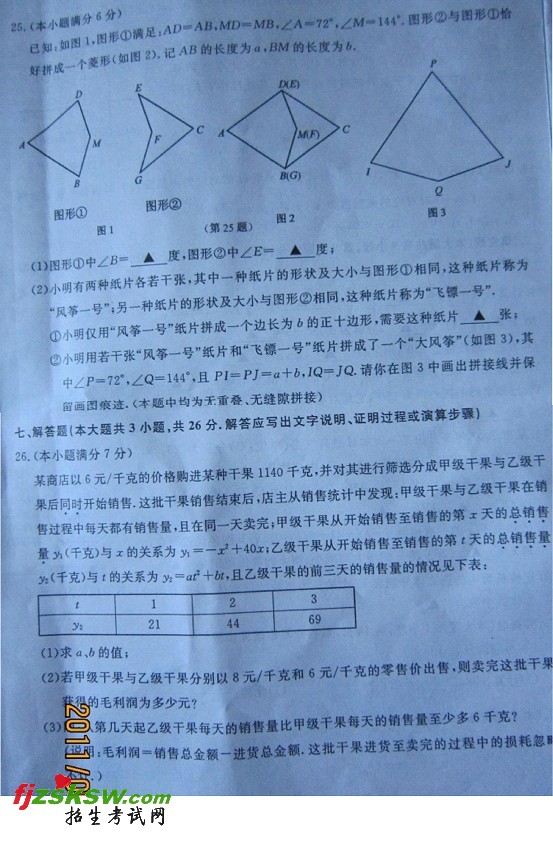 25.(本小题满分6分)
已知:如图1,图形①满足:AD=AB,MD=MB,∠A=72°,∠M=144°.图形②与图形①恰
好拼成一个菱形(如图2).记AB的长度为a,BM的长度为b.
D E D(E) P
A M F C A M(F) C I J
B G B(G) Q
图形① 图形②
图1 (第25题) 图2 图3
(1)图形①中∠B=▲度,图形②中∠E=▲度;
(2)小明有两种纸片各若干张,其中一种纸片的形状及大小与图形①相同,这种纸片称为
“风筝一号”;另一种纸片的形状及大小与图形②相同,这种纸片称为“飞镖一号”.
①小明仅用“风筝一号”纸片拼成一个边长为b的正十边形,需要这种纸片▲张;
②小明用若干张“风筝一号”纸片和“飞镖一号”纸片拼成了一个“大风筝”(如图3),其
中∠P=72°,∠Q=144°,且PI=PJ=a+b,IQ=JQ.请你在图3中画出拼接线并保
留画图痕迹.(本题中均为无重叠、无缝隙拼接)
七、解答题(本大题共3小题,共26分.解答应写出文字说明、证明过程或演算步骤)
26.(本小题满分7分)
某商店以6元/千克的价格购进某种干果1140千克,并对其进行筛选分成甲级干果与乙级干
果后同时开始销售.这批干果销售结束后,店主从销售统计中发现:甲级干果与乙级干果在销
售过程中每天都有销售量,且在同一天卖完;甲级干果从开始销售至销售的第x天的总销售
量y₁(千克)与x的关系为y₁=-x²+40x;乙级干果从开始销售至销售的第t天的总销售量
y₂(千克)与t的关系为y₂=at²+bt,且乙级干果的前三天的销售量的情况见下表:
t 1 2 3
y₂ 21 44 69
(1)求a、b的值;
(2)若甲级干果与乙级干果分别以8元/千克和6元/千克的零售价出售,则卖完这批干果
获得的毛利润为多少元?
(3)第几天起乙级干果每天的销售量比甲级干果每天的销售量至少多6千克?
(说明:毛利润=销售总金额-进货总金额.这批干果进货至卖完的过程中的损耗忽
2011
fjzsksw.com
招生考试网